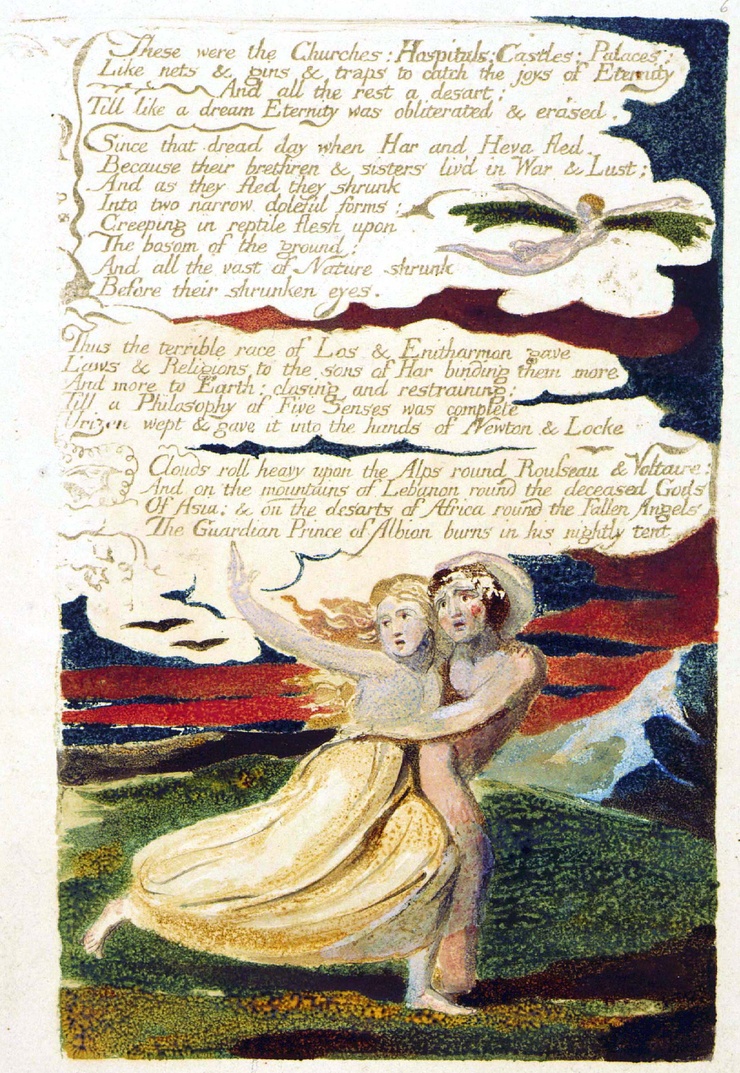 6
These were the Churches: Hospitals: Castles: Palaces:
Like nets & gins & traps to catch the joys of Eternity
And all the rest a desart;
Till like a dream Eternity was obliterated & erased.
Since that dread day when Har and Heva fled.
Because their brethren & sisters liv'd in War & Lust;
And as they fled they shrunk
Into two narrow doleful forms:
Creeping in reptile flesh upon
The bosom of the ground:
And all the vast of Nature shrunk
Before their shrunken eyes.
Thus the terrible race of Los & Enitharmon gave
Laws & Religions to the sons of Har binding them more
And more to Earth: closing and restraining:
Till a Philosophy of Five Senses was complete
Urizen wept & gave it into the hands of Newton & Locke
Clouds roll heavy upon the Alps round Rousseau & Voltaire:
And on the mountains of Lebanon round the deceased Gods
Of Asia; & on the desarts of Africa round the Fallen Angels
The Guardian Prince of Albion burns in his nightly tent